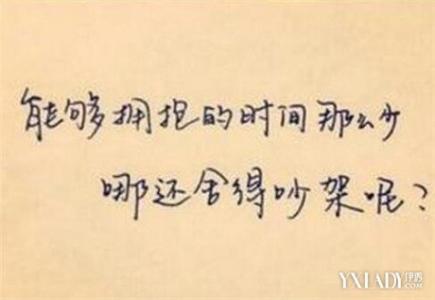 能够拥抱的时间那么少
哪还舍得吵架呢？
YXLADY伊秀
.COM